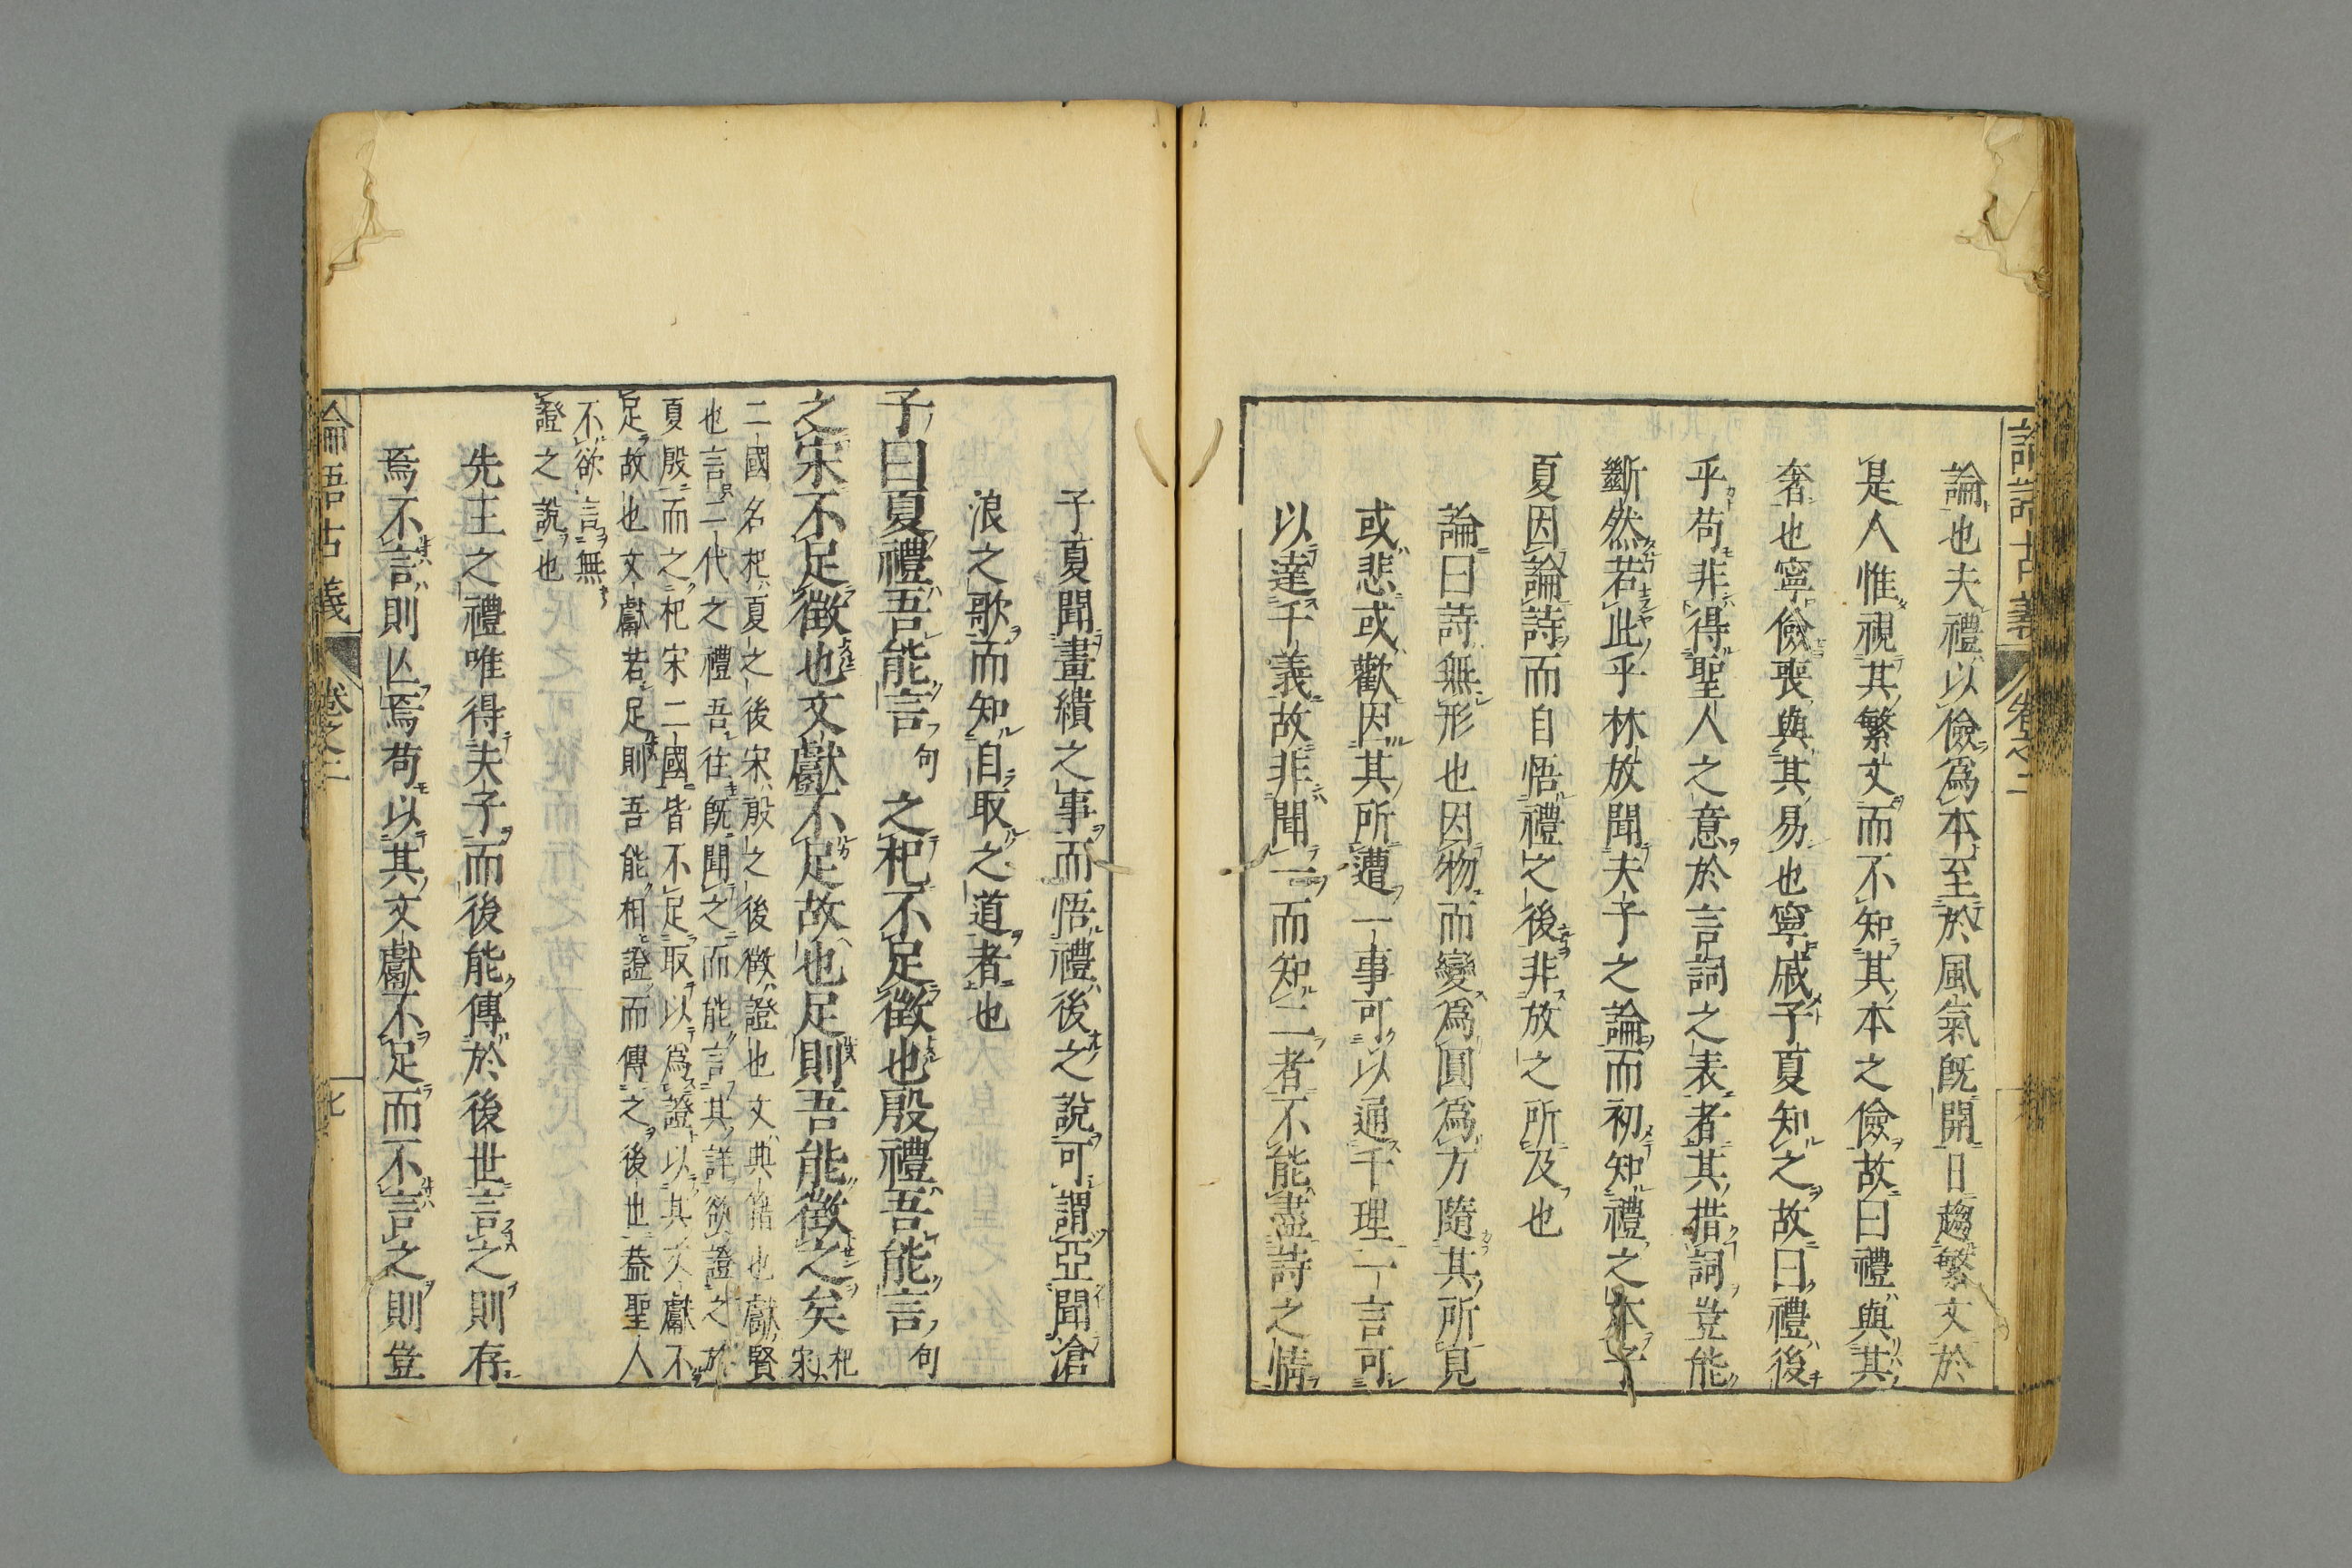 論也夫禮以儉爲本至於風氣旣開日趨繁文於
是人惟視其繁文而不知其本之儉故曰禮與其
奢也寧儉喪與其易也寧戚子夏知之故曰禮後
乎苟非得聖人之意於言詞之表者其措詞豈能
斷然若此乎林放聞夫子之論而初知禮之本子
夏因論詩而自悟禮之後非放之所及也
論曰詩無形也因物而變爲圓爲方隨其所見
或悲或歡因其所遭一事可以通千理一言可
以達千義故非聞一而知二者不能盡詩之情
子夏聞畫繢之事而悟禮後之說可謂亞聞滄
浪之歌而知自取之道者也
子曰夏禮吾能言句之杞不足徵也殷禮吾能言句
之宋不足徵也文獻不足故也足則吾能徵之矣杞宋
二國名杞夏之後宋殷之後徵證也文典籍也獻賢
也言二代之禮吾往旣聞之而能言其詳欲證之於
夏殷而之杞宋二國皆不足取以爲證以其文獻不
足故也文獻若足則吾能相證而傳之後世蓋聖人
不欲言無
證之說也
先王之禮唯得夫子而後能傳於後世言之則存
焉不言則亾焉苟以其文獻不足而不言之則豈
論語古義 卷之二